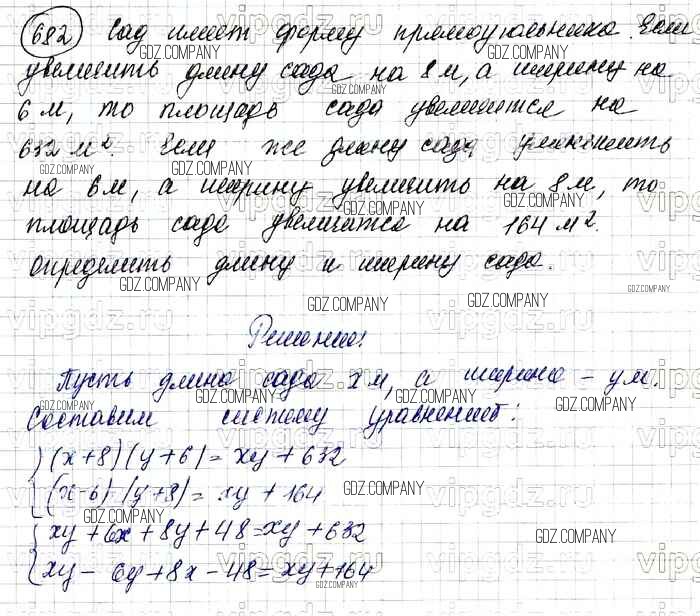 682 Сад имеет форму прямоугольника. Если
увеличить длину сада на 8 м, а ширину на
6 м, то площадь сада увеличится на
632 м². Если же длину сада уменьшить
на 6 м, а ширину увеличить на 8 м, то
площадь сада увеличится на 164 м².
Определить длину и ширину сада.
Решение:
Пусть длина сада x м, а ширина – y м.
Составим систему уравнений:
(x+8)(y+6)=xy+632
(x-6)(y+8)=xy+164
xy+6x+8y+48=xy+632
xy-6y+8x-48=xy+164
GDZ.COMPANY
vipgdz.ru